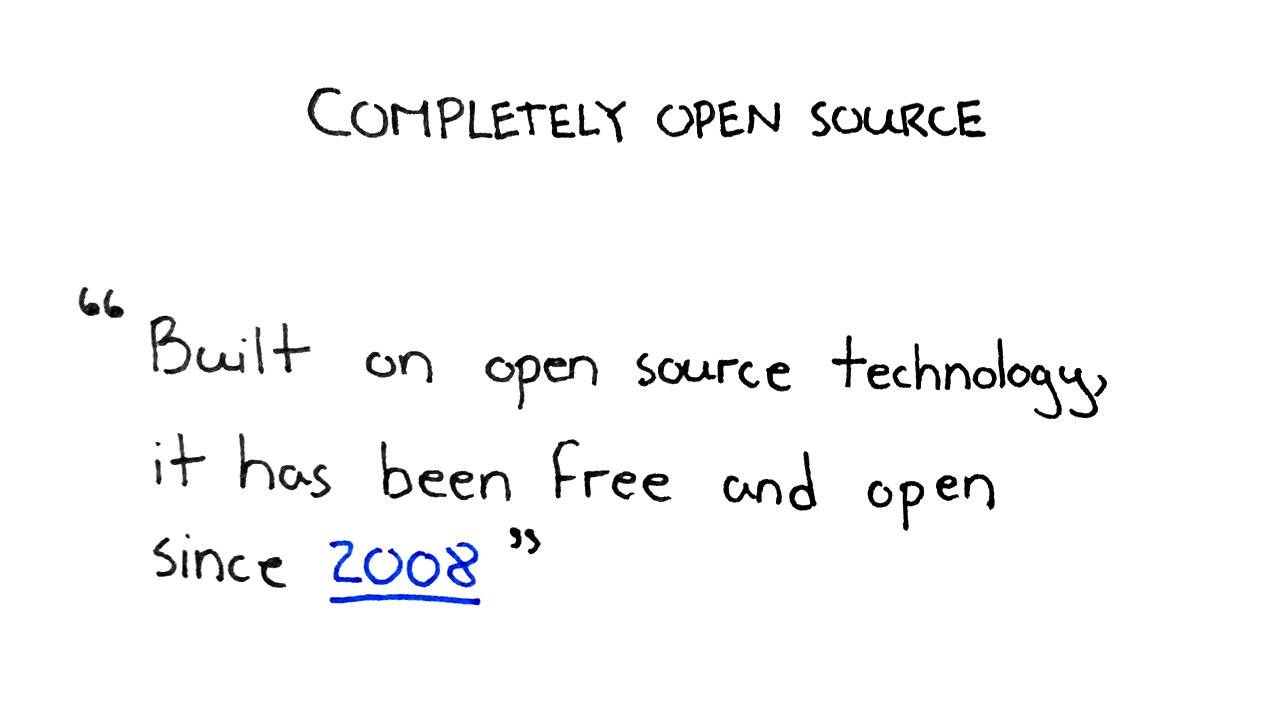 COMPLETELY OPEN SOURCE
“Built on open source technology,
it has been free and open
since 2008”